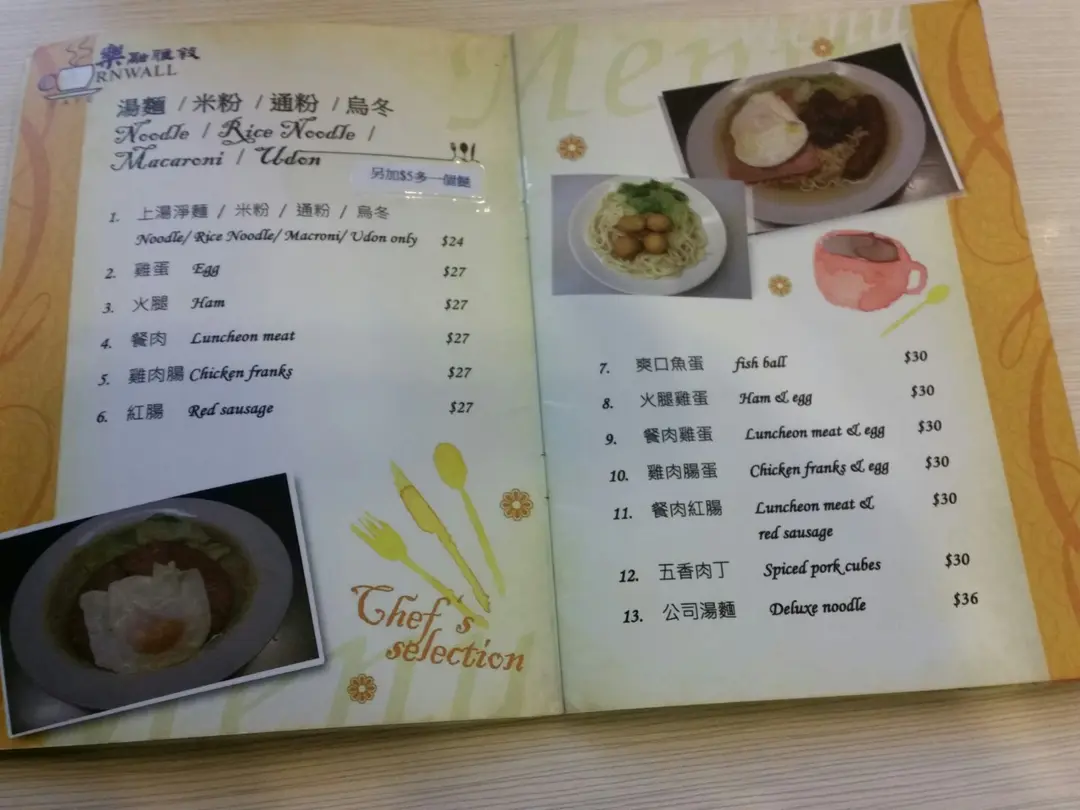 樂融雅敘
RNWALL
CAFE
湯麵 / 米粉 / 通粉 / 烏冬
Noodle / Rice Noodle /
Macaroni / Udon
另加$5多一個麵
1. 上湯淨麵 / 米粉 / 通粉 / 烏冬
Noodle/ Rice Noodle/ Macroni/ Udon only $24
2. 雞蛋 Egg $27
3. 火腿 Ham $27
4. 餐肉 Luncheon meat $27
5. 雞肉腸 Chicken franks $27
6. 紅腸 Red sausage $27
Chef's
selection
Menu
Menu
Menu
7. 爽口魚蛋 fish ball $30
8. 火腿雞蛋 Ham & egg $30
9. 餐肉雞蛋 Luncheon meat & egg $30
10. 雞肉腸蛋 Chicken franks & egg $30
11. 餐肉紅腸 Luncheon meat & $30
red sausage
12. 五香肉丁 Spiced pork cubes $30
13. 公司湯麵 Deluxe noodle $36